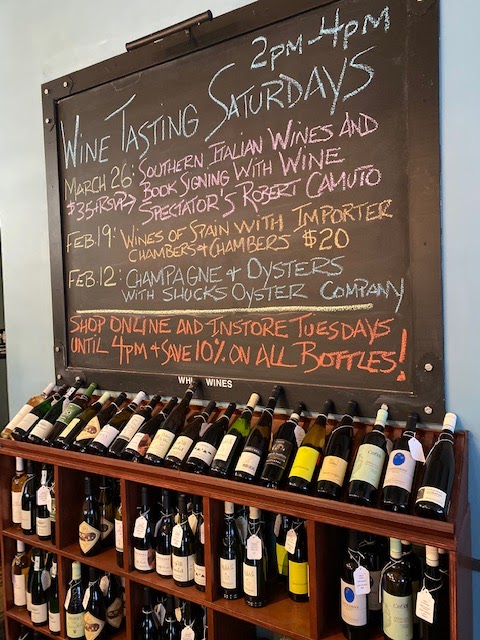 2PM-4PM
WINE TASTING SATURDAYS
MARCH 26: SOUTHERN ITALIAN WINES AND
$35+RSVP→ BOOK SIGNING WITH WINE
SPECTATOR'S ROBERT CAMUTO
FEB. 19: WINES OF SPAIN WITH IMPORTER
CHAMBERS & CHAMBERS $20
FEB. 12: CHAMPAGNE & OYSTERS
WITH SHUCKS OYSTER COMPANY
SHOP ONLINE AND INSTORE TUESDAYS
UNTIL 4PM & SAVE 10% ON ALL BOTTLES!
WINES